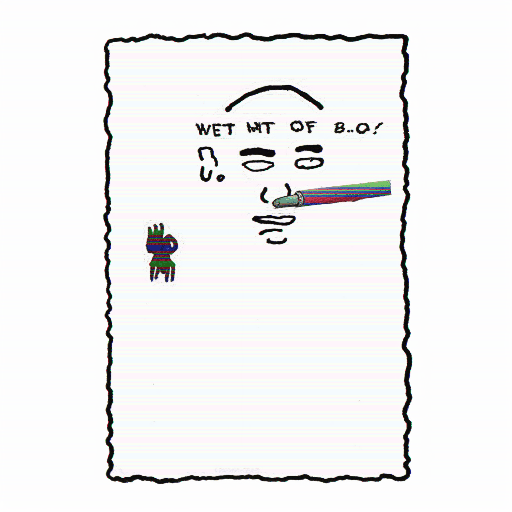 WET MT OF B..O!